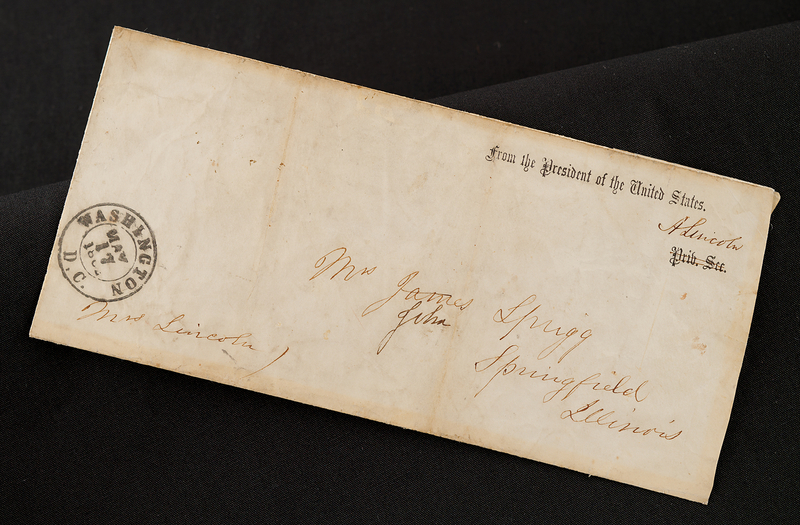 From the President of the United States.
A Lincoln
Priv. Sec.
WASHINGTON D.C.
MAY
17
Mrs James Sprigg
John
Springfield
Illinois
Mrs Lincoln